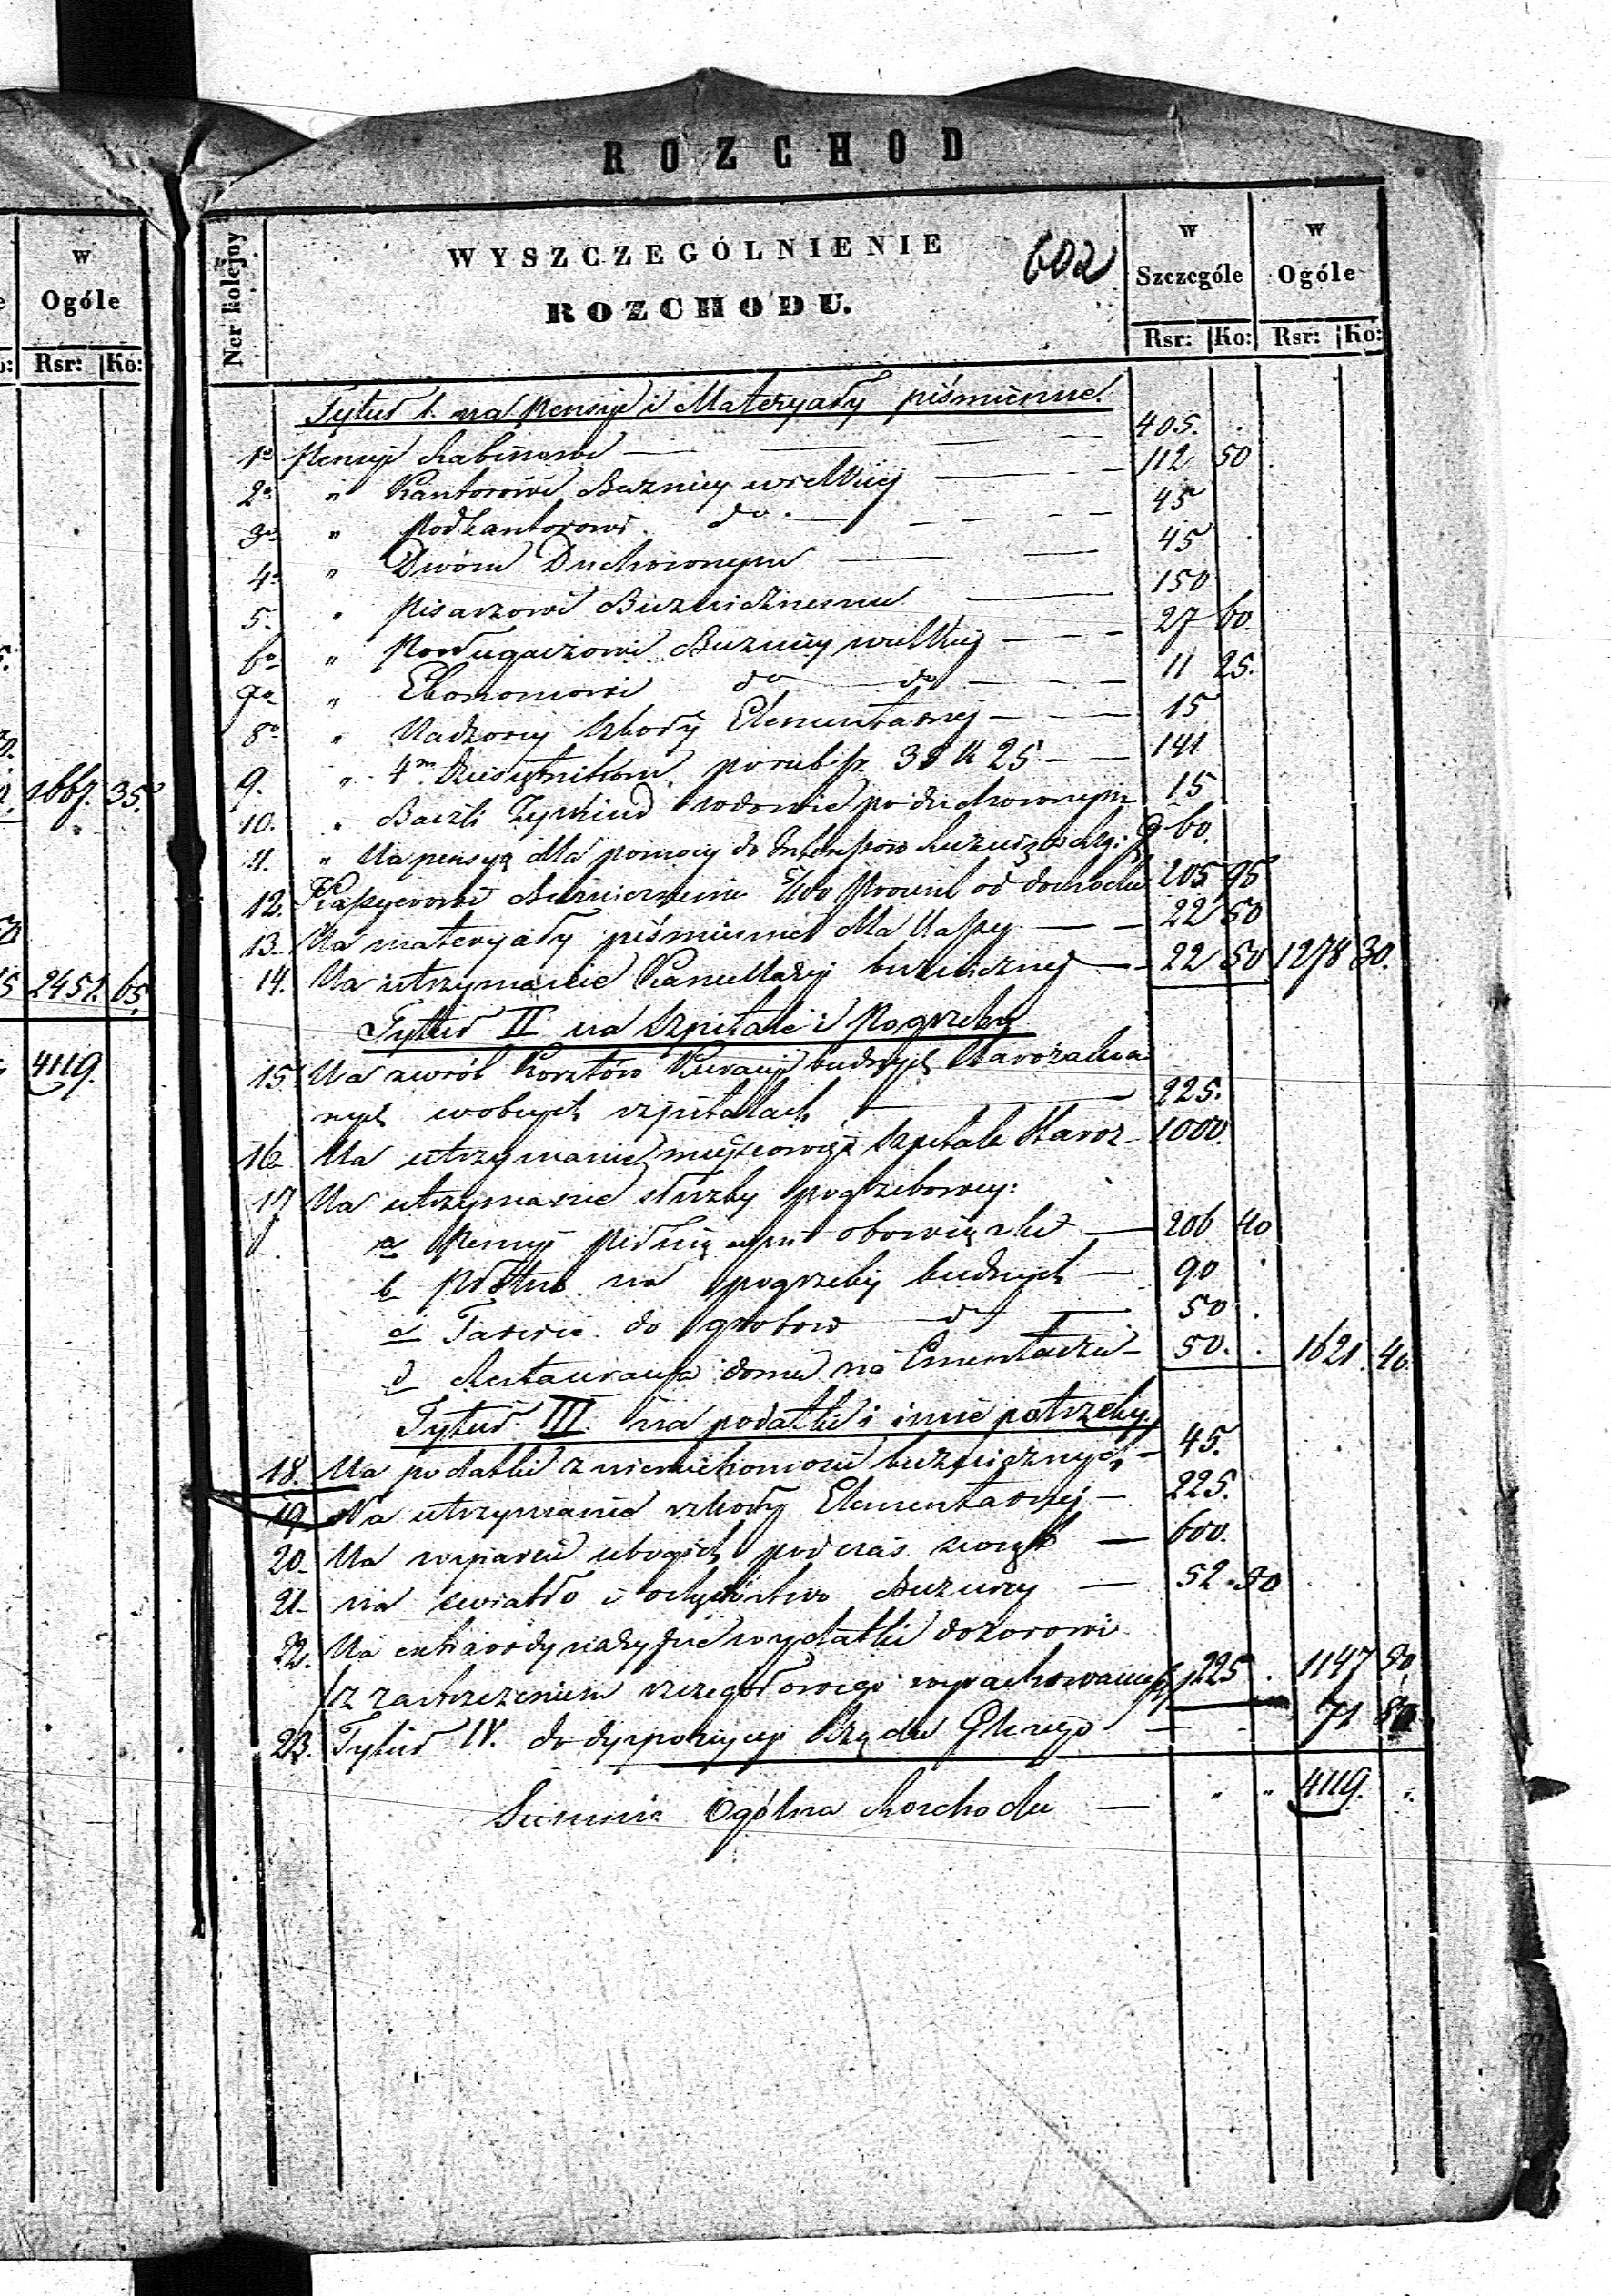 ROZCHOD
w
Ogóle
Rsr: Ko:
1667. 35.
2451. 65.
4119.
Ner kolejoy
WYSZCZEGÓLNIENIE
ROZCHODU.
602
w Szczególe
w Ogóle
Rsr: Ko: Rsr: Ko:
Tytuł I. na pensye i Materyały piśmienne.
1o Pensyi Rabinowi — 405.
2o " Kantorowi Bużnicy wielkiej — 112 50
3o " Podkantorowi do — 45
4o " Dwóm Duchownym — 45
5. " Pisarzowi Bużnicznemu — 150
6o " Posługaczowi Bużnicy wielkiej — 27 60.
7o " Ekonomowi do do — 11 25.
8o " Nadzorcy Szkoły Elementarnej — 15
9. " 4m Dziesiętnikom po rubsr. 35 k 25 — 141
10. " wdowie po duchownym 15
11. " Na pensyą dla pomocy do 9 60.
12. Kassyerowi Bużnicznemu 5/100 Procent od dochodu 205 95
13. Na materyały piśmienne dla Kassy — 22 50
14. Na utrzymanie Kancellaryi bużnicznej — 22 50 1278 30.
Tytuł II na Szpitale i Pogrzeby
15. Na zwrót Kosztów Kuracyi biednych Starozakon
nych w obcych szpitalach — 225.
16. Na utrzymanie miejscowego Szpitala Staroz — 1000.
17 Na utrzymanie służby pogrzebowey:
a Pensyi obowiązki — 206 40
b Płótno na pogrzeby biednych — 90
c Tarcic do grobów — 50
d Restauracya domu na Cmentarzu — 50. 1621. 40.
Tytuł III na podatki i inne potrzeby
18. Na podatki z nieruchomości bużnicznych — 45.
19 Na utrzymanie szkoły Elementarnej — 225.
20. Na wsparcie ubogich podczas — 600.
21. na światło i ochędóstwo Bużnicy — 52 50
22. Na extraordynaryjne wydatki dozorowi
/z zastrzeżeniem szczegółowego wyrachowania/ 225 . 1147 50.
23. Tytuł IV. do dyspozycyi Rządu Gbrnego — 71 80
Summa Ogólna Rozchodu — " " 4119.